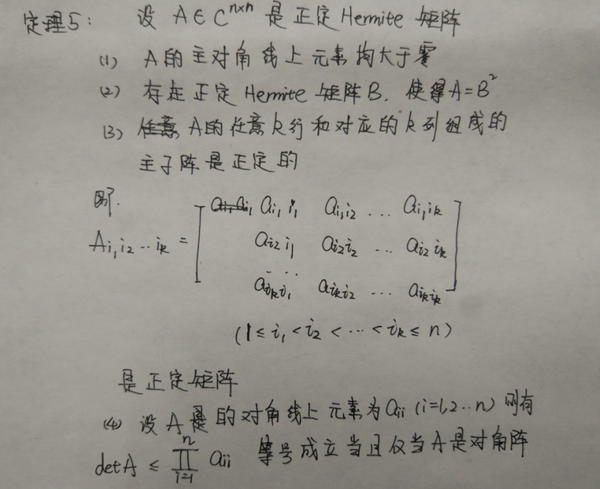 定理5: 设 A∈C^{n×n} 是正定Hermite矩阵
(1) A的主对角线上元素均大于零
(2) 存在正定Hermite矩阵B, 使得A=B²
(3) A的任意k行和对应的k列组成的
主子阵是正定的
即.
A_{i₁i₂…i_k} = [ a_{i₁i₁} a_{i₁i₂} … a_{i₁i_k}
a_{i₂i₁} a_{i₂i₂} … a_{i₂i_k}
… …
a_{i_ki₁} a_{i_ki₂} … a_{i_ki_k} ]
(1≤i₁<i₂<…<i_k≤n)
是正定矩阵
(4) 设A的对角线上元素为a_{ii} (i=1,2…n) 则有
detA ≤ ∏_{i=1}^{n} a_{ii} 等号成立当且仅当A是对角阵